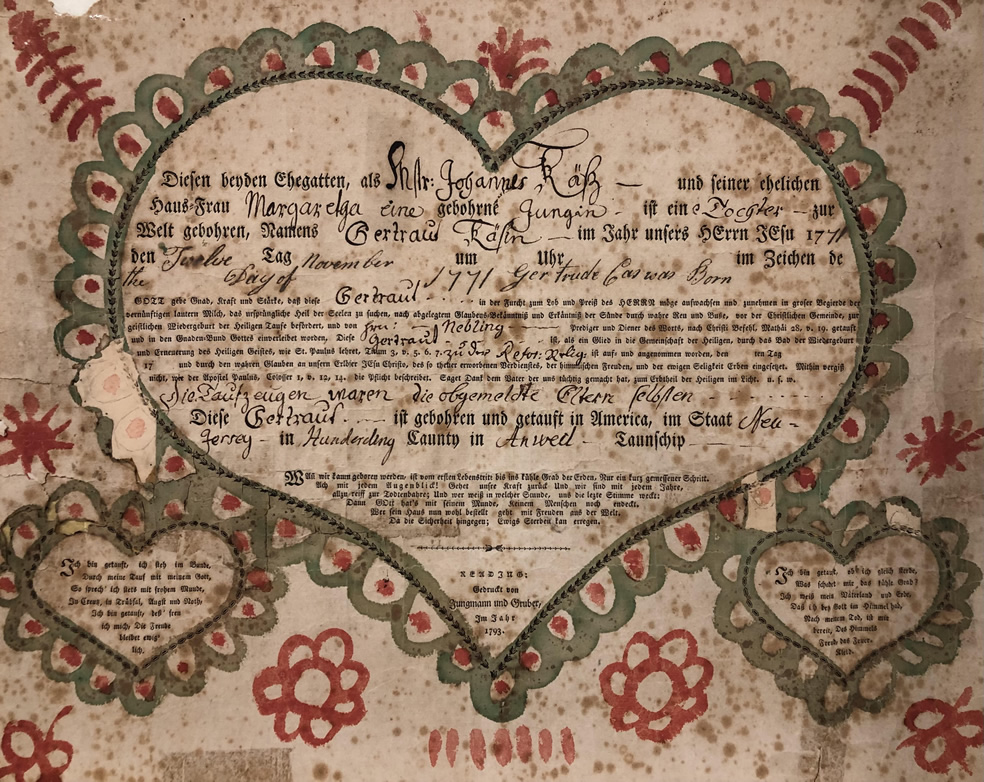 Diesen beyden Ehegatten, als Mstr: Johannes Käß — und seiner ehelichen
Haus-Frau Margaretga eine gebohrne Jungin - ist eine Tochter — zur
Welt gebohren, Namens Gertraud Käsin — im Jahr unsers HErrn JEsu 1771
den Twelve Tag November um Uhr im Zeichen de
the Day of 1771 Gertrude Cas was Born
GOTT gebe Gnad, Kraft und Stärke, daß diese Gertraud - - - - in der Furcht zum Lob und Preiß des HERRN möge aufwachsen und zunehmen in groser Begierde der
vernünftigen lautern Milch, das ursprüngliche Heil der Seelen zu suchen, nach abgelegtem Glaubens-Bekäntniß und Erkäntniß der Sünde durch wahre Reu und Buse, vor der Christlichen Gemeinde, zur
geistlichen Wiedergeburt der Heiligen Taufe befördert, und von Nebling Prediger und Diener des Worts, nach Christi Befehl, Mathäi 28, v. 19. getauft
und in den Gnaden-Bund Gottes einverleibet worden. Diese Gertraud - - ist, als ein Glied in die Gemeinschaft der Heiligen, durch das Bad der Wiedergeburt
und Erneuerung des Heiligen Geistes, wie St. Paulus lehret, 3, v. 5. 6. 7. zu der Refor: Relig: ist auf- und angenommen worden, den ten Tag
17 und durch den wahren Glauben an unsern Erlöser JEsu Christo, des so theuer erworbenen Verdienstes, der himmlischen Freuden, und der ewigen Seligkeit Erben eingesetzt. Mithin vergiß
nicht, wer der Apostel Paulus, Colosser 1, v. 12, 14. die Pflicht beschreibet. Saget Dank dem Vater der uns tüchtig gemacht hat, zum Erbtheil der Heiligen im Licht. u. s. w.
Die Taufzeugen waren die obgemeldte Eltern selbsten - - - -
Diese Gertraud - - - ist gebohren und getauft in America, im Staat Neu-
Jersey - in Hunderding Caunty in Anwell - Taunschip —
Wann wir kaum geboren werden, ist vom ersten Lebenstrit bis ins kühle Grab der Erden, Nur ein kurz gemessener Schritt.
Ach mit jedem Augenblick! Gehet unsre Kraft zurück Und wir sind mit jedem Jahre,
allzu reiff zur Todtenbahre; Und wer weiß in welcher Stunde, uns die lezte Stimme weckt;
Dann GOtt hat's mit seinem Munde, Keinem Menschen noch endeckt.
Wer sein Haus nun wohl bestellt geht mit Freuden aus der Welt.
Da die Sicherheit hingegen; Ewigs Sterben kan erregen.
READING;
Gedruckt von
Jungmann und Gruber,
Im Jahr
1793.
Ich bin getauft, ich steh im Bunde,
Durch meine Tauf mit meinem Gott,
So sprech' ich stets mit frohem Munde,
In Creuz, in Trübsal, Angst und Noth;
Ich bin getauft, des' freu
ich mich, Die Freude
bleibet ewig-
lich.
Ich bin getauft, ob' ich gleich sterbe,
Was schadet mir das kühle Grab?
Ich weiß mein Vaterland und Erbe,
Das ich bey Gott im Himmel hab,
Nach meinem Tod, ist mir
bereit, Des Himmels
Freud das Feyer-
Kleid.